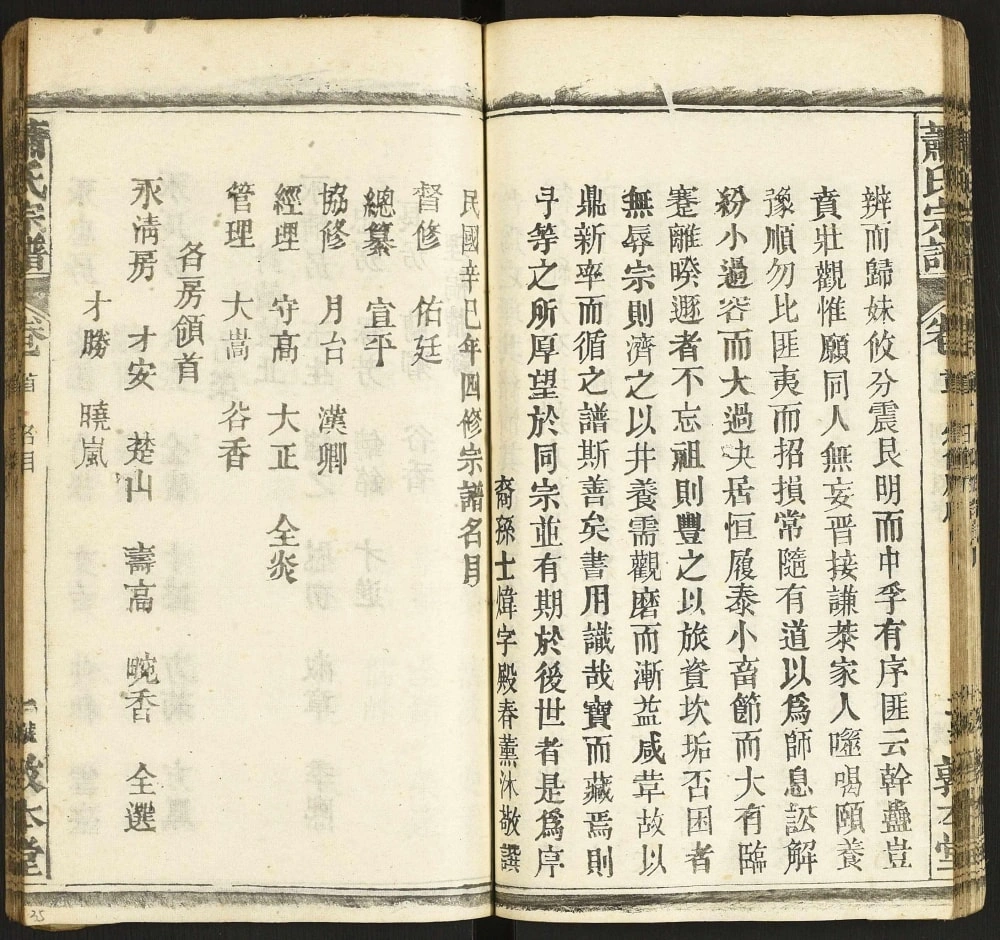 辨而歸妹攸分震艮明而中孚有序匪云幹蠱豈
賁壯觀惟願同人無妄晉接謙恭家人噬嗑頤養
豫順勿比匪夷而招損常隨有道以爲師息訟解
紛小過容而大過夬居恒履泰小畜節而大有臨
蹇離暌遯者不忘祖則豐之以旅資坎垢否困者
無辱宗則濟之以井養需觀磨而漸益咸萃故以
鼎新率而循之譜斯善矣書用識哉寶而藏焉則
予等之所厚望於同宗並有期於後世者是爲序
裔孫士煒字殿春薰沐敬譔
民國辛巳年四修宗譜名目
督修 佑廷
總纂 宣平
協修 月台 漢卿
經理 守高 大正 全炎
管理 大嵩 谷香
各房領首
永淸房 才安 楚山 壽高 晼香 全選
才勝 曉嵐
蕭氏宗譜 卷 首 名目 敦本堂
蕭氏宗譜 卷 首 敦本堂
35